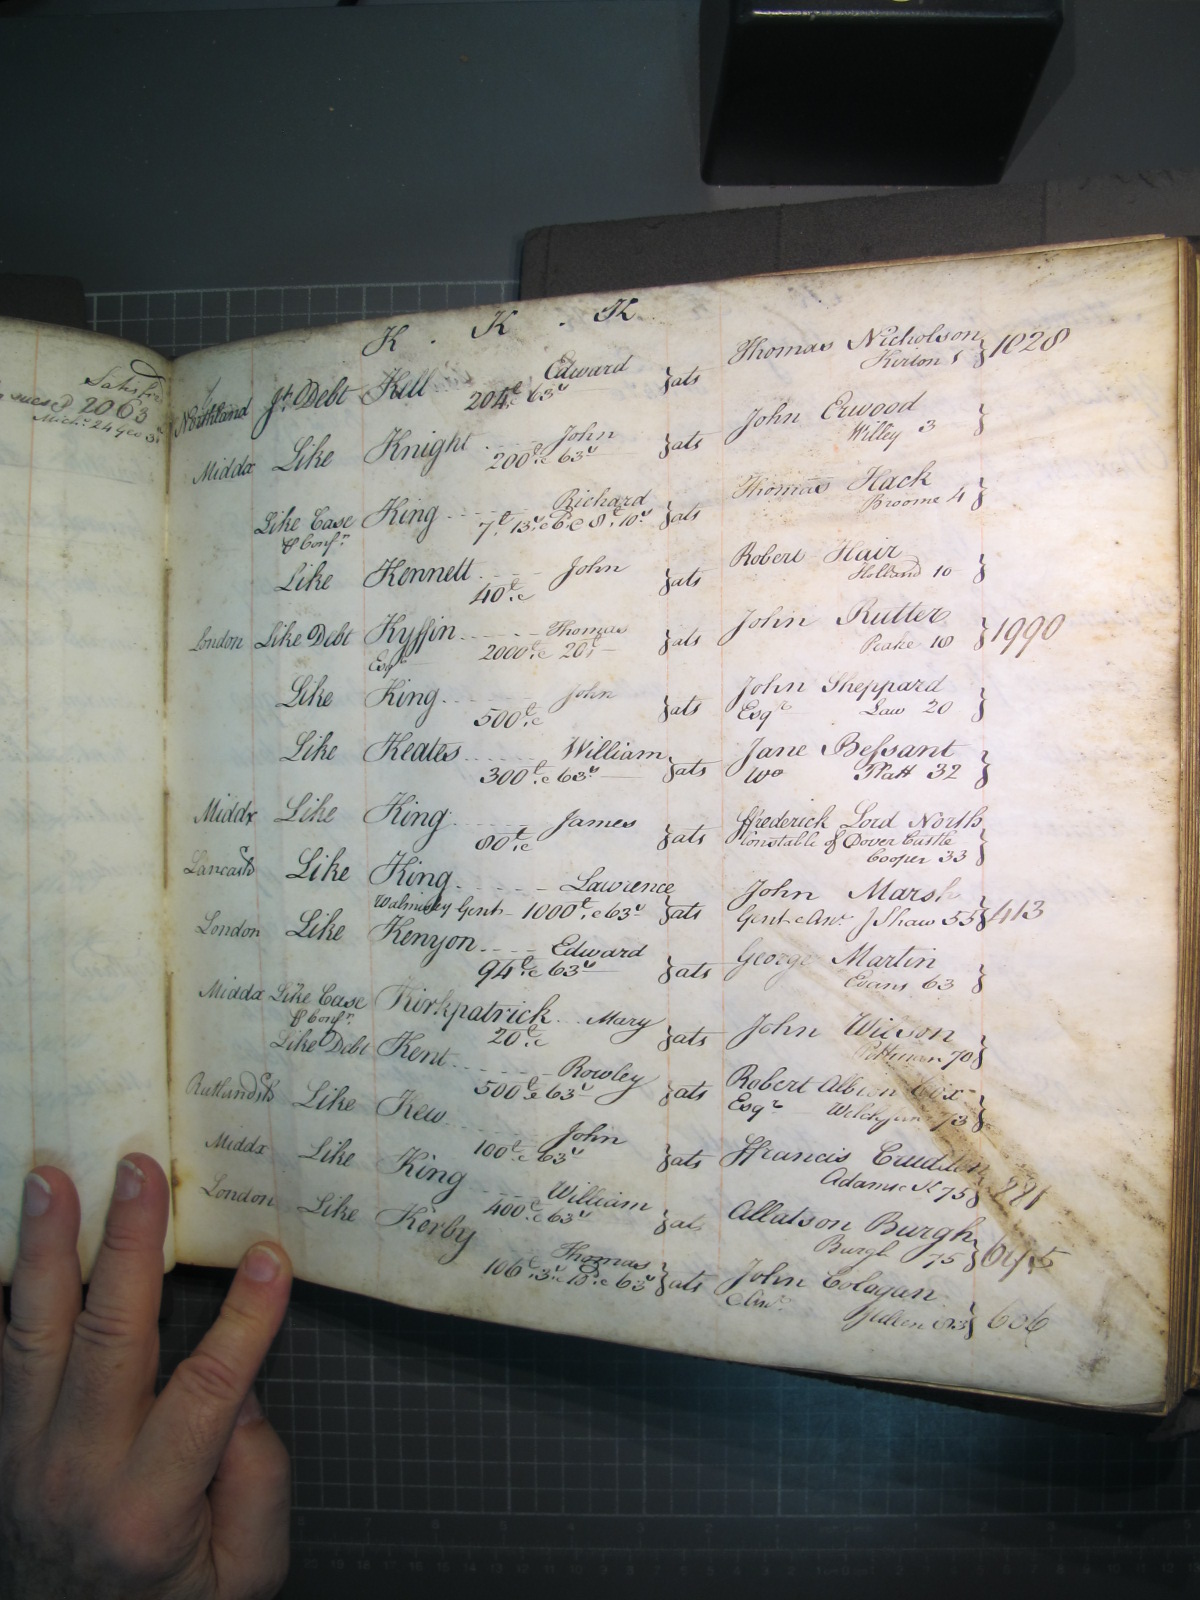 Satisfn
2063
Mich. 24 Geo 3d
K . K . K
Northland Jt. Debt Kell Edward }ats Thomas Nicholson } 1028
204£.. 63s Kirton 1
Middx Like Knight John }ats John Erwood }
200£.. & 63s Willey 3
Like Case King Richard }ats Thomas Hack }
Broome 4
Like Kennett John }ats Robert Hair }
40£.. Holland 10
London Like Debt Kyffin Thomas }ats John Rutter } 1990
Esqr 2000£.. & 20s Peake 18
Like King John }ats John Sheppard }
500£.. Esqr Law 20
Like Keates William }ats Jane Bessant }
300£.. & 63s Wo Platt 32
Middx Like King James }ats Frederick Lord North }
80£.. Constable of Dover Castle
Cooper 33
Lancash Like King Lawrence }ats John Marsh } 413
Walmisley Gent 1000£.. & 63s Gent J Shaw 55
London Like Kenyon Edward }ats George Martin }
94£.. & 63s Evans 63
Middx Like Case Kirkpatrick Mary }ats John }
20£.. 70
Like Debt Kent Rowley }ats Robert Albion Cox }
500£.. & 63s Esqr 73
Rutlandsh Like Kew John }ats Francis }
100£.. & 63s Adams 75
Middx Like King William }ats Allatson Burgh }
400£.. & 63s Burgh 75
London Like Kerby Thomas }ats John Colagan } 606